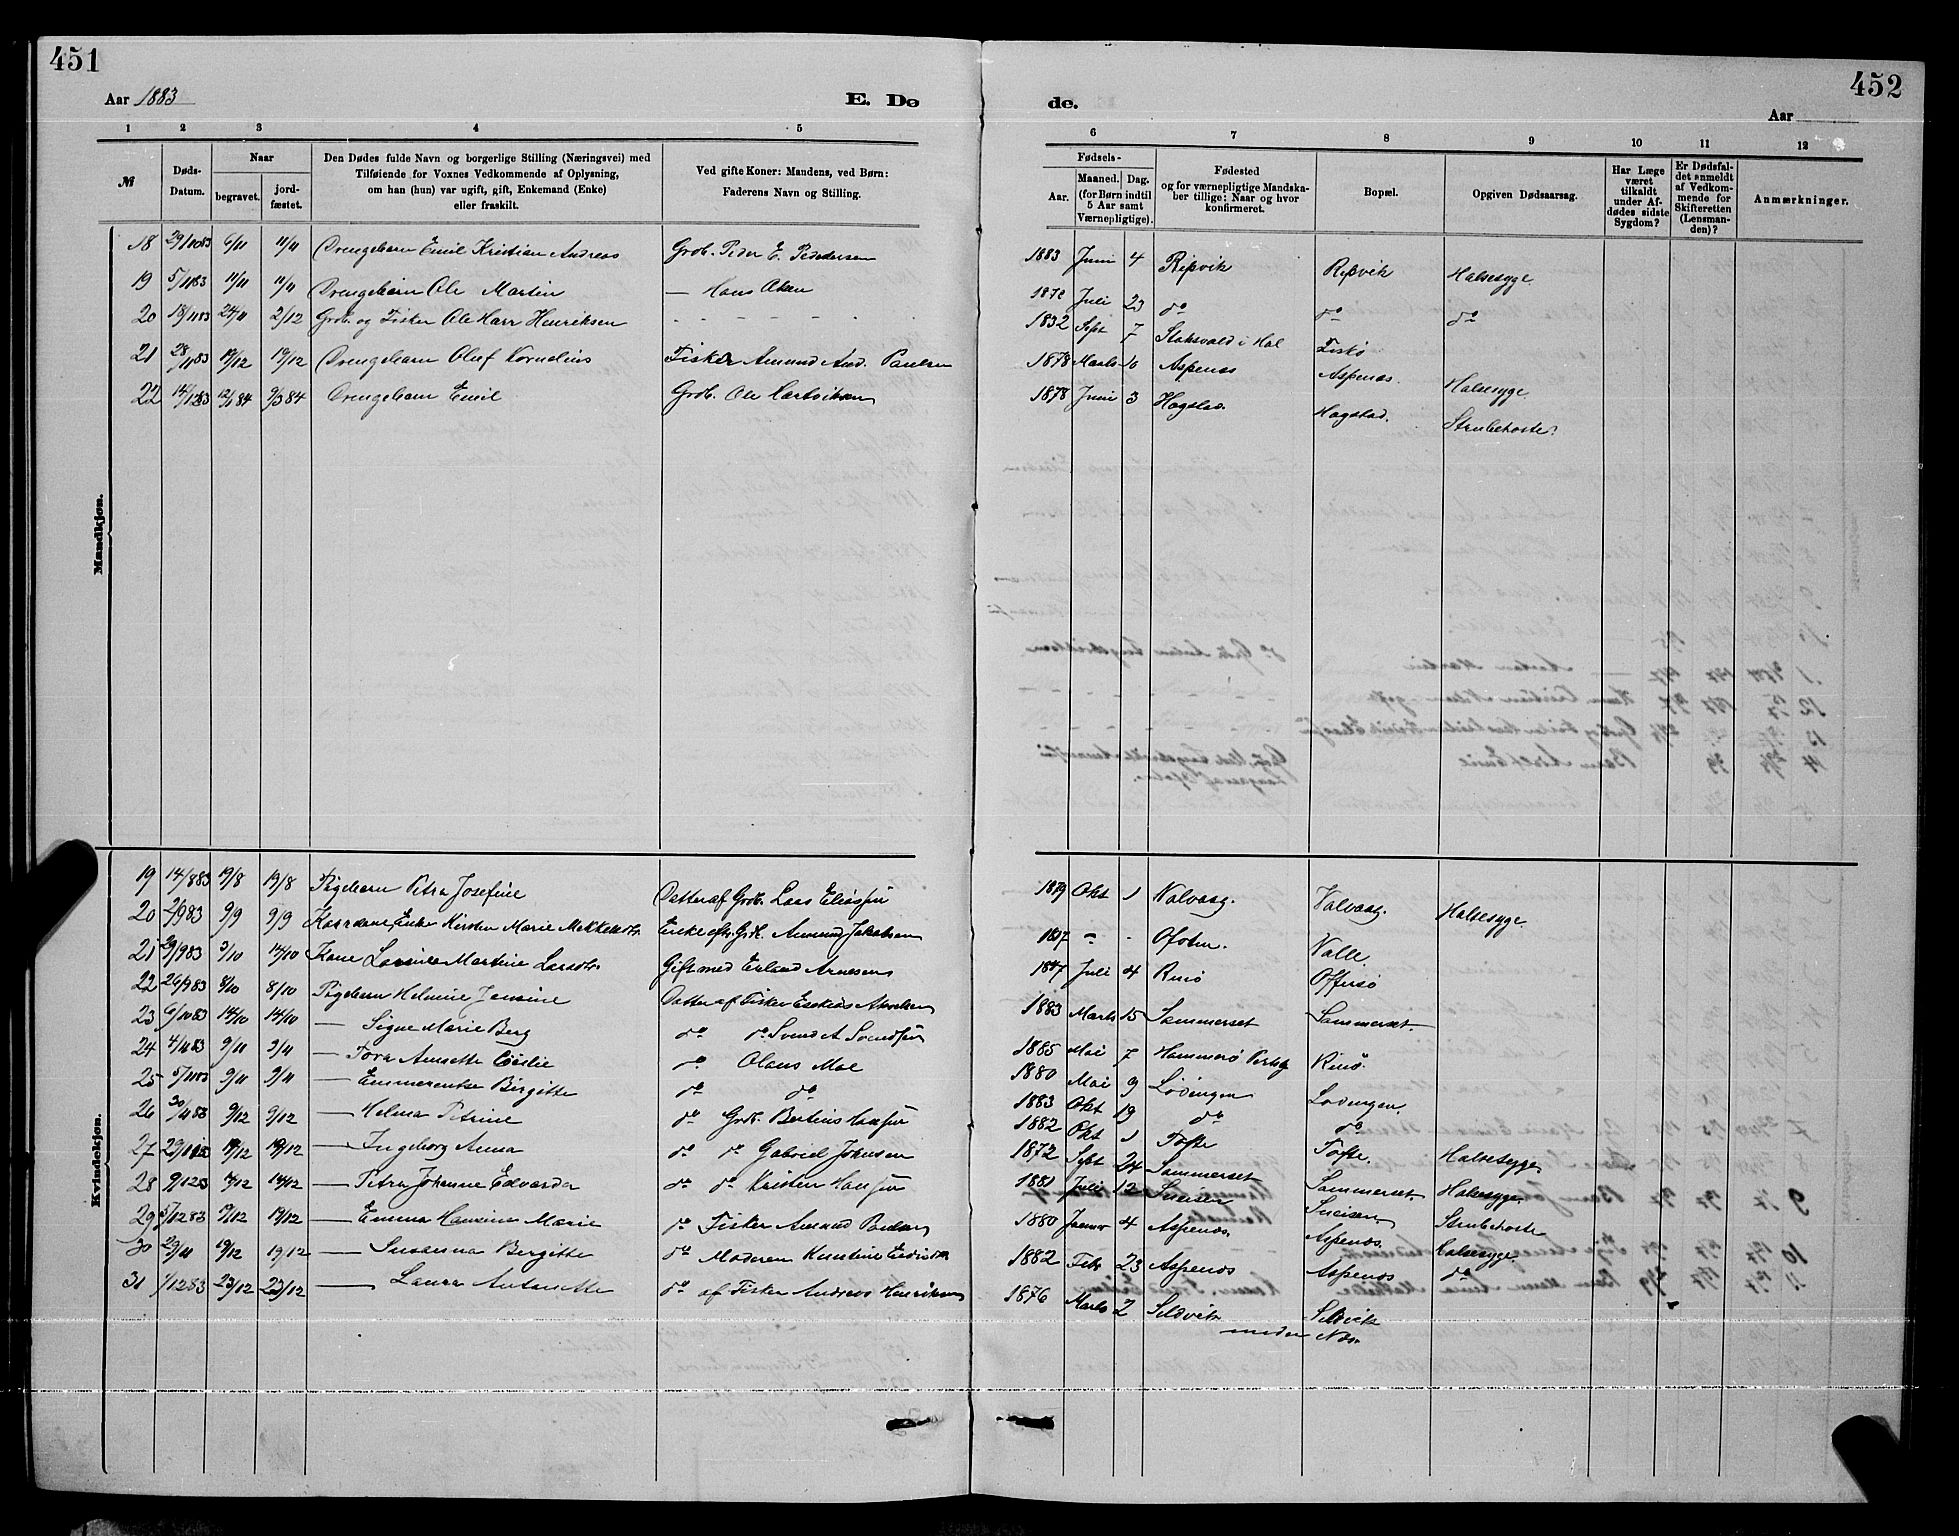 451
Aar 1883
E. Dø
1 2 3 4 5
№
Døds-Datum.
Naar
begravet.
jord-fæstet.
Den Dødes fulde Navn og borgerlige Stilling (Næringsvei) med
Tilføiende for Voxnes Vedkommende af Oplysning,
om han (hun) var ugift, gift, Enkemand (Enke)
eller fraskilt.
Ved gifte Koner: Mandens, ved Børn:
Faderens Navn og Stilling.
Mandkjøn.
18 29/10 83 6/11 11/11 Drengebarn Emil Kristian Andreas Grdb. Peder E. Pedersen
19 5/11 83 11/11 11/11 Drengebarn Ole Martin — Hans Olsen
20 18/11 83 24/11 2/12 Grdb. og Fisker Ole Harr Henriksen - - - - -
21 28/11 83 19/12 19/12 Drengebarn Oluf Kornelius Fisker Amund And. Paulsen
22 14/12 83 12/1 84 9/3 84 Drengebarn Emil Grdb. Ole Hartviksen
Kvindekjøn.
19 14/8 83 19/8 19/8 Pigebarn Petra Josefine Datter af Grdb. Lars Eliasen
20 2/9 83 9/9 9/9 Enke Kirsten Marie Enke eft. Amund Jakobsen
21 29/9 83 3/10 14/10 Kone Martine Larsdtr. Gift med Erland Arnesen
22 26/9 83 8/10 8/10 Pigebarn Helmine Jensine Datter af Fisker Esekias
23 6/10 83 14/10 14/10 — Signe Marie Berg do do Svend A. Svendsen
24 4/11 83 9/11 9/11 — Tora Annette do Olaus Moe
25 5/11 83 9/11 9/11 — Emmerentse Birgitte do do
26 30/4 83 9/12 9/12 — Helma Petrine do Grdb. Bertinus Hansen
27 29/11 19/12 19/12 — Ingeborg Anna do do Gabriel Johnsen
28 9/12 83 14/12 14/12 — Petra Johanne Edvarda do do Kristen Hansen
29 5/12 83 19/12 19/12 — Emma Hansine Marie do Fisker Amund Paulsen
30 29/11 19/12 19/12 — Susanna Bergitte do Moderen
31 1/12 83 23/12 23/12 — Laura Antonette do af Fisker Andreas Henriksen
452
de.
Aar
6 7 8 9 10 11 12
Fødsels-
Aar.
Maaned. Dag.
(for Børn indtil
5 Aar samt
Værnepligtige).
Fødested
og for værnepligtige Mandska-
ber tillige: Naar og hvor
konfirmeret.
Bopæl.
Opgiven Dødsaarsag.
Har Læge
været
tilkaldt
under Af-
dødes sidste
Sygdom?
Er Dødsfal-
det anmeldt
af Vedkom-
mende for
Skifteretten
(Lensman-
den)?
Anmærkninger.
1883 Juni 4 Repvik Repvik Halsesyge
1872 Juli 23 do do do
1832 Sept 7 Stoksvold i Hol Fiskø
1878 Marts 10 Aspenæs Aspenæs. Halsesyge
1878 Juni 3 Hagstad. Hagstad. Strubehoste.
1879 Okt 1 Valvaag. Valvaag. Halsesyge
1807 - - Ofoten. Valle.
1847 Juli 4 Rinø Offersø
1883 Marts 15 Sammerset Sammerset.
1885 Mai 7 Hammerø Rinø.
1880 Mai 9 Lødingen Lødingen.
1883 Okt 19 do do
1882 Okt 1 Tofte Tofte. Halsesyge
1872 Sept 24 Sammerset Sammerset. Halsesyge
1881 Juli 12 Sneisen Sneisen. Strubehoste
1880 Januar 4 Aspenæs. Aspenæs. Halsesyge
1882 Febr 23 Aspenæs Aspenæs do
1876 Marts 2 Seldvik Seldvik
under Næs.